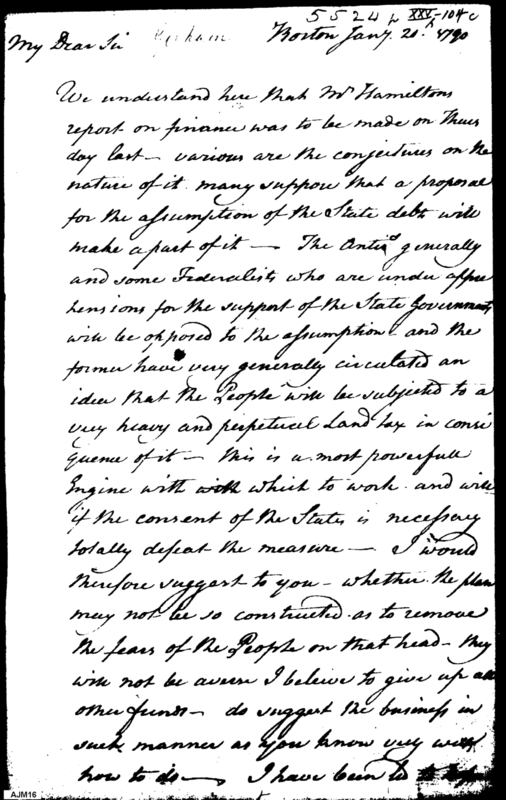 5524 L XXV-104c
My Dear Sir Gorham Boston Jany. 20th 1790
We understand here that Mr Hamiltons
report on finance was to be made on Thurs
day last — various are the conjectures on the
nature of it many suppose that a proposal
for the assumption of the State debts will
make a part of it — The Antis generally
and some Federalists who are under appre
hensions for the support of the State Governments
will be opposed to the assumption and the
former have very generally circulated an
idea that the People will be subjected to a
very heavy and perpetual Land tax in conse
quence of it — this is a most powerfull
Engine with with which to work and will
if the consent of the States is necessary
totally defeat the measure — I would
therefore suggest to you — whether the plan
may not be so constructed as to remove
the fears of the People on that head — they
will not be averse I beleive to give up all
other funds — do suggest the business in
such manner as you know very well
how to do — I have been led to
AJM16